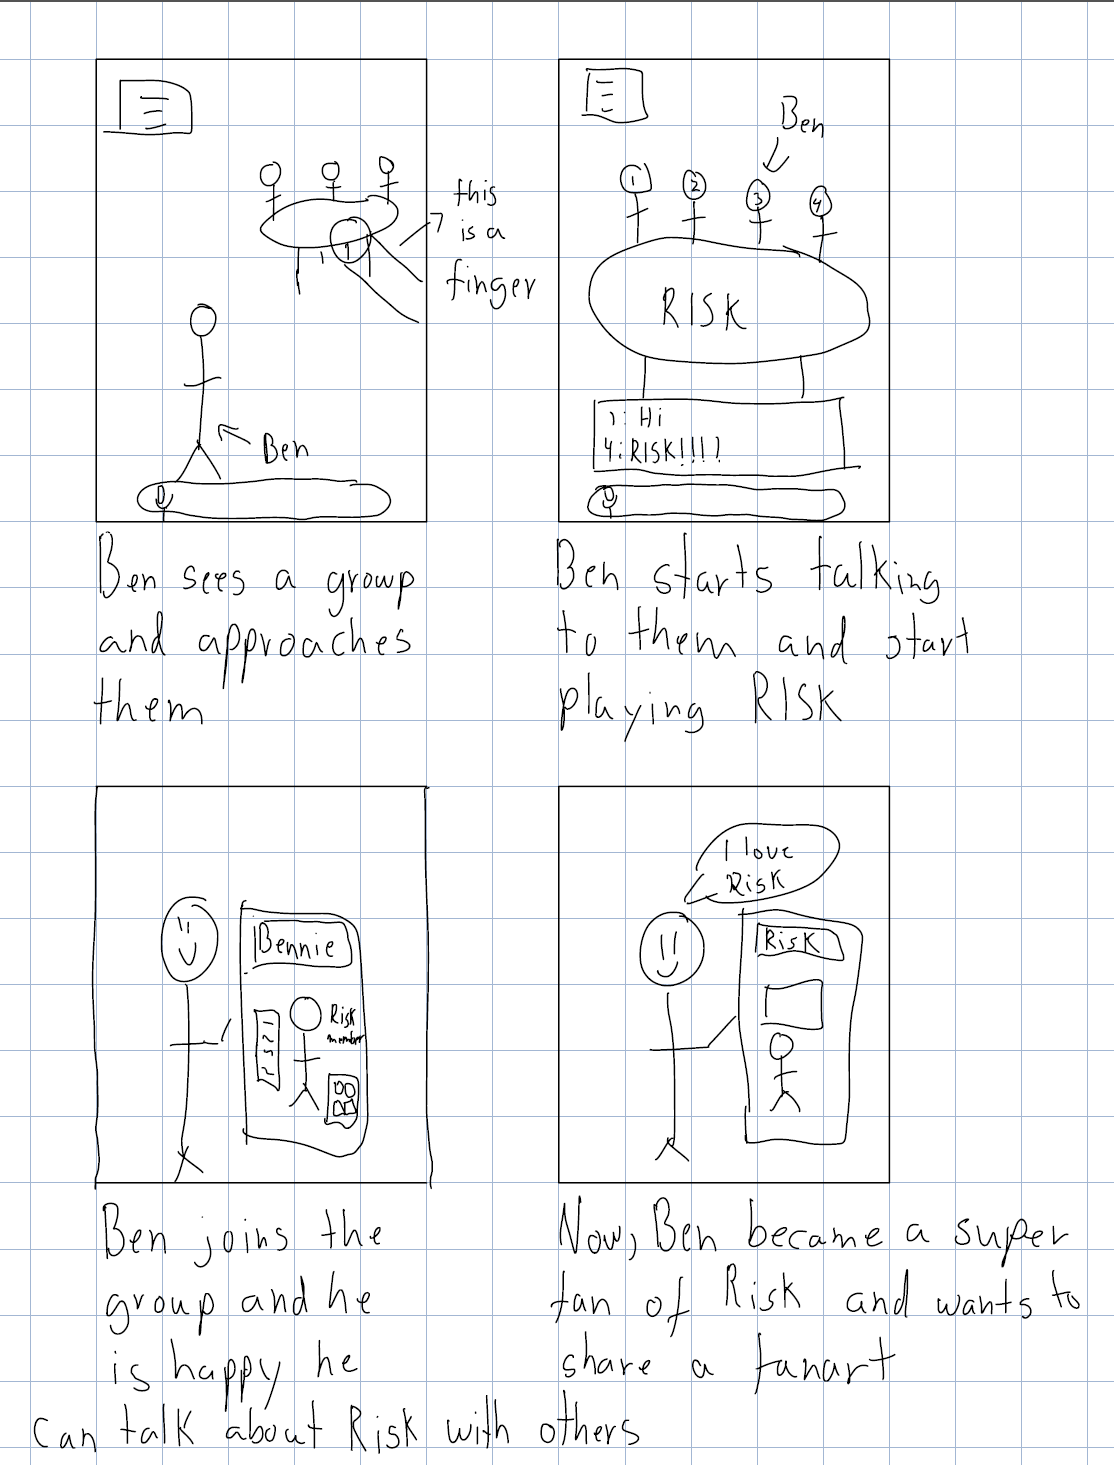 this
is a
finger
Ben
Ben sees a group
and approaches
them
Ben
1
2
3
4
RISK
1: Hi
4: RISK!!!!
Ben starts talking
to them and start
playing RISK
Bennie
Risk
member
Ben joins the
group and he
is happy he
can talk about Risk with others
I love
Risk
Risk
Now, Ben became a super
fan of Risk and wants to
share a fanart